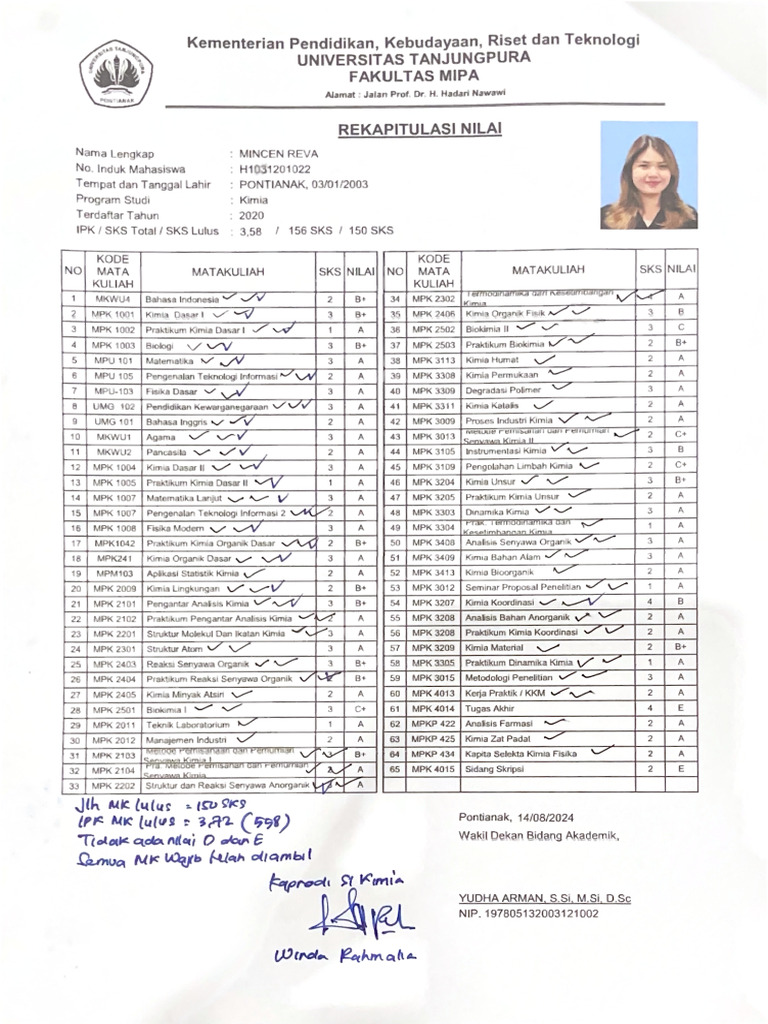 UNIVERSITAS TANJUNGPURA
PONTIANAK
Kementerian Pendidikan, Kebudayaan, Riset dan Teknologi
UNIVERSITAS TANJUNGPURA
FAKULTAS MIPA
Alamat : Jalan Prof. Dr. H. Hadari Nawawi
REKAPITULASI NILAI
Nama Lengkap : MINCEN REVA
No. Induk Mahasiswa : H1031201022
Tempat dan Tanggal Lahir : PONTIANAK, 03/01/2003
Program Studi : Kimia
Terdaftar Tahun : 2020
IPK / SKS Total / SKS Lulus : 3,58 / 156 SKS / 150 SKS
NO KODE MATA KULIAH MATAKULIAH SKS NILAI
1 MKWU4 Bahasa Indonesia 2 B+
2 MPK 1001 Kimia Dasar I 3 B+
3 MPK 1002 Praktikum Kimia Dasar I 1 A
4 MPK 1003 Biologi 3 B+
5 MPU 101 Matematika 3 A
6 MPU 105 Pengenalan Teknologi Informasi 2 A
7 MPU-103 Fisika Dasar 3 A
8 UMG 102 Pendidikan Kewarganegaraan 3 A
9 UMG 101 Bahasa Inggris 2 A
10 MKWU1 Agama 3 A
11 MKWU2 Pancasila 2 A
12 MPK 1004 Kimia Dasar II 3 A
13 MPK 1005 Praktikum Kimia Dasar II 1 A
14 MPK 1007 Matematika Lanjut 3 A
15 MPK 1007 Pengenalan Teknologi Informasi 2 2 A
16 MPK 1008 Fisika Modern 3 A
17 MPK1042 Praktikum Kimia Organik Dasar 2 B+
18 MPK241 Kimia Organik Dasar 3 A
19 MPM103 Aplikasi Statistik Kimia 2 A
20 MPK 2009 Kimia Lingkungan 2 B+
21 MPK 2101 Pengantar Analisis Kimia 3 B+
22 MPK 2102 Praktikum Pengantar Analisis Kimia 2 A
23 MPK 2201 Struktur Molekul Dan Ikatan Kimia 3 A
24 MPK 2301 Struktur Atom 2 A
25 MPK 2403 Reaksi Senyawa Organik 3 B+
26 MPK 2404 Praktikum Reaksi Senyawa Organik B+
27 MPK 2405 Kimia Minyak Atsiri 2 A
28 MPK 2501 Biokimia I 3 C+
29 MPK 2011 Teknik Laboratorium 1 A
30 MPK 2012 Manajemen Industri 2 A
31 MPK 2103 Metode Pemisahaan dan Pemurnian Senyawa Kimia I B+
32 MPK 2104 Pra. Metode Pemisahan dan Pemurnian Senyawa Kimia A
33 MPK 2202 Struktur dan Reaksi Senyawa Anorganik A
NO KODE MATA KULIAH MATAKULIAH SKS NILAI
34 MPK 2302 Termodinamika dan Kesetimbangan Kimia 4 A
35 MPK 2406 Kimia Organik Fisik 3 B
36 MPK 2502 Biokimia II 3 C
37 MPK 2503 Praktikum Biokimia 2 B+
38 MPK 3113 Kimia Humat 2 A
39 MPK 3308 Kimia Permukaan 2 A
40 MPK 3309 Degradasi Polimer 3 A
41 MPK 3311 Kimia Katalis 2 A
42 MPK 3009 Proses Industri Kimia 2 A
43 MPK 3013 Metode Pemisahan dan Pemurnian Senyawa Kimia II 2 C+
44 MPK 3105 Instrumentasi Kimia 3 B
45 MPK 3109 Pengolahan Limbah Kimia 2 C+
46 MPK 3204 Kimia Unsur 3 B+
47 MPK 3205 Praktikum Kimia Unsur 2 A
48 MPK 3303 Dinamika Kimia 3 A
49 MPK 3304 Prak. Termodinamika dan Kesetimbangan Kimia 1 A
50 MPK 3408 Analisis Senyawa Organik 3 A
51 MPK 3409 Kimia Bahan Alam 3 A
52 MPK 3413 Kimia Bioorganik 2 A
53 MPK 3012 Seminar Proposal Penelitian 1 A
54 MPK 3207 Kimia Koordinasi 4 B
55 MPK 3208 Analisis Bahan Anorganik 2 A
56 MPK 3208 Praktikum Kimia Koordinasi 2 A
57 MPK 3209 Kimia Material 2 B+
58 MPK 3305 Praktikum Dinamika Kimia 1 A
59 MPK 3015 Metodologi Penelitian 3 A
60 MPK 4013 Kerja Praktik / KKM 2 A
61 MPK 4014 Tugas Akhir 4 E
62 MPKP 422 Analisis Farmasi 2 A
63 MPKP 425 Kimia Zat Padat 2 A
64 MPKP 434 Kapita Selekta Kimia Fisika 2 A
65 MPK 4015 Sidang Skripsi 2 E
Jlh MK lulus = 150 SKS
IPK MK lulus = 3,72 (558)
Tidak ada nilai D dan E
Semua MK Wajib telah diambil
Kaprodi S1 Kimia
Winda Rahmalia
Pontianak, 14/08/2024
Wakil Dekan Bidang Akademik,
YUDHA ARMAN, S.Si, M.Si, D.Sc
NIP. 197805132003121002